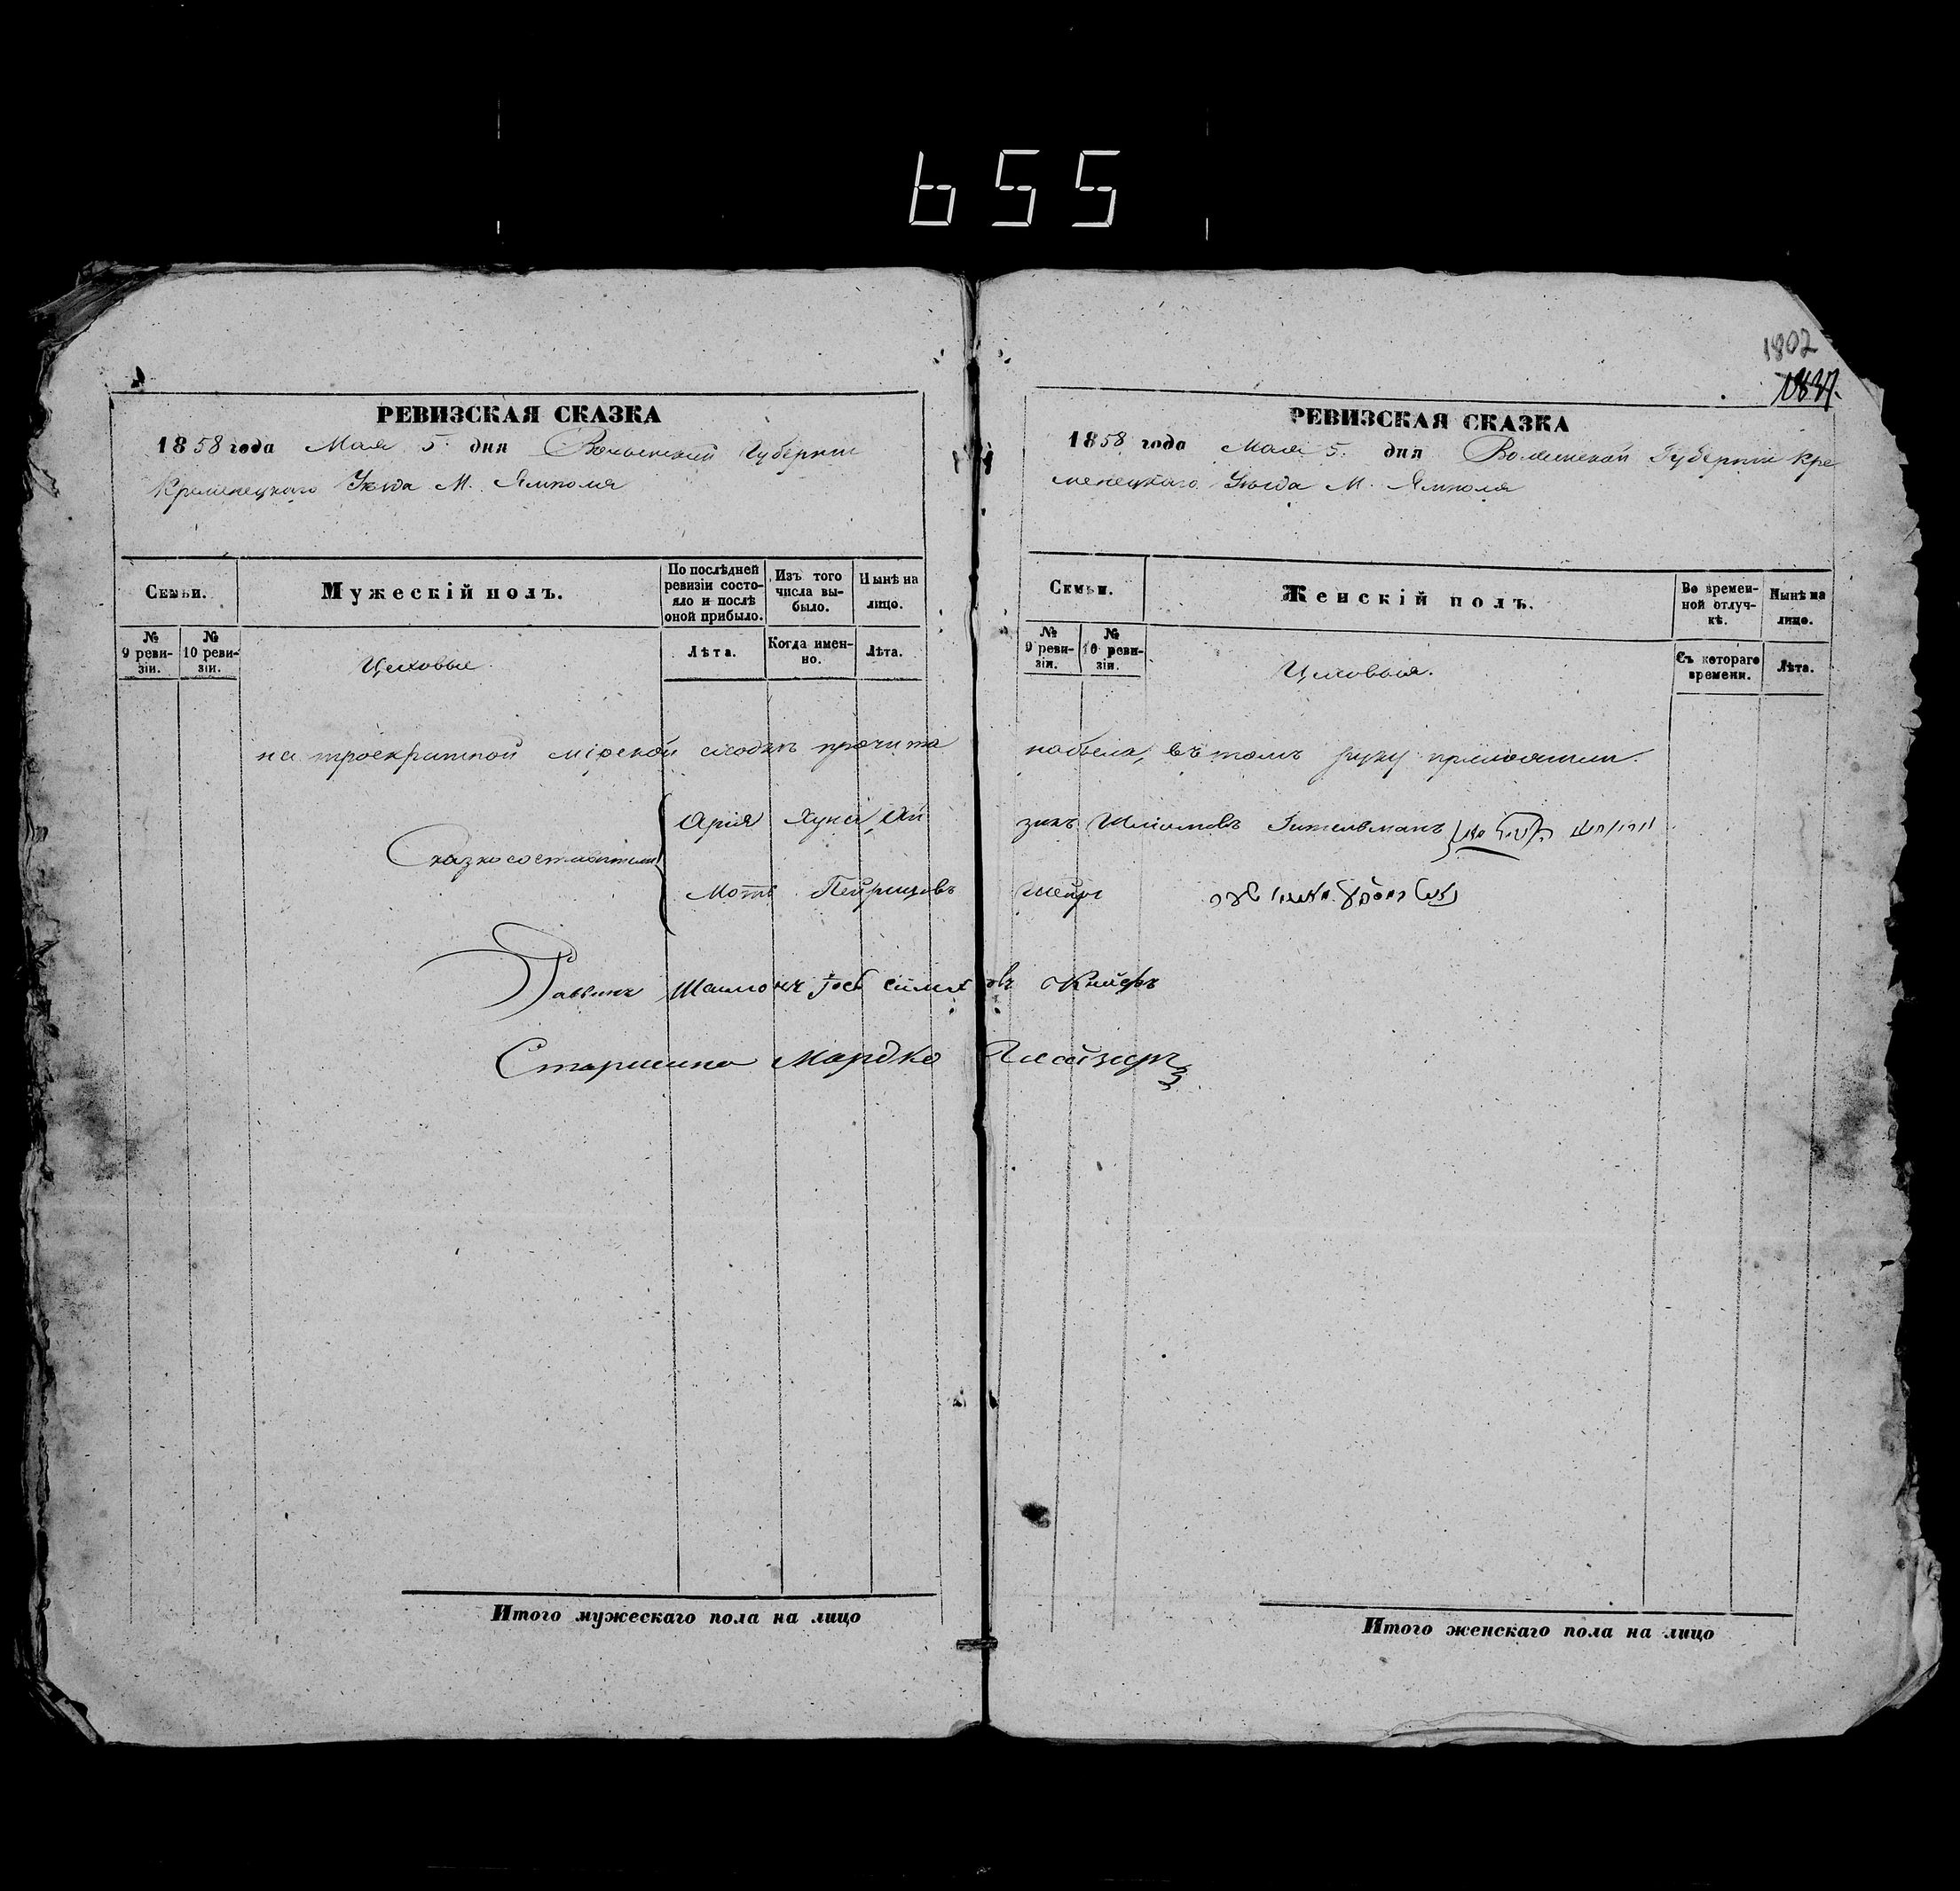 655
1802
1837.
РЕВИЗСКАЯ СКАЗКА
1858 года Мая 5 дня Волынской Губернии
Кременецкаго Уезда М. Ямполя
Семьи.
Мужескій полъ.
По послѣдней ревизіи состояло и послѣ оной прибыло.
Изъ того числа выбыло.
Нынѣ на лицо.
№ 9 ревизіи.
№ 10 ревизіи.
Цеховые
Лѣта.
Когда именно.
Лѣта.
РЕВИЗСКАЯ СКАЗКА
1858 года Мая 5. дня Волынской Губернии Кре
менецкаго Уезда М. Ямполя
Семьи.
Женскій полъ.
Во временной отлучкѣ.
Нынѣ на лицо.
№ 9 ревизіи.
№ 10 ревизіи.
Цеховыя.
Съ котораго времени.
Лѣта.
на троекратной мірской сходке прочита
нобыла, въ томъ руку приложили.
Сказкосоставители
Арія
зикъ Шліомовъ Гительманъ
Мотя
Шейнъ
Раввинъ
Старшина Мордко
Итого мужескаго пола на лицо
Итого женскаго пола на лицо